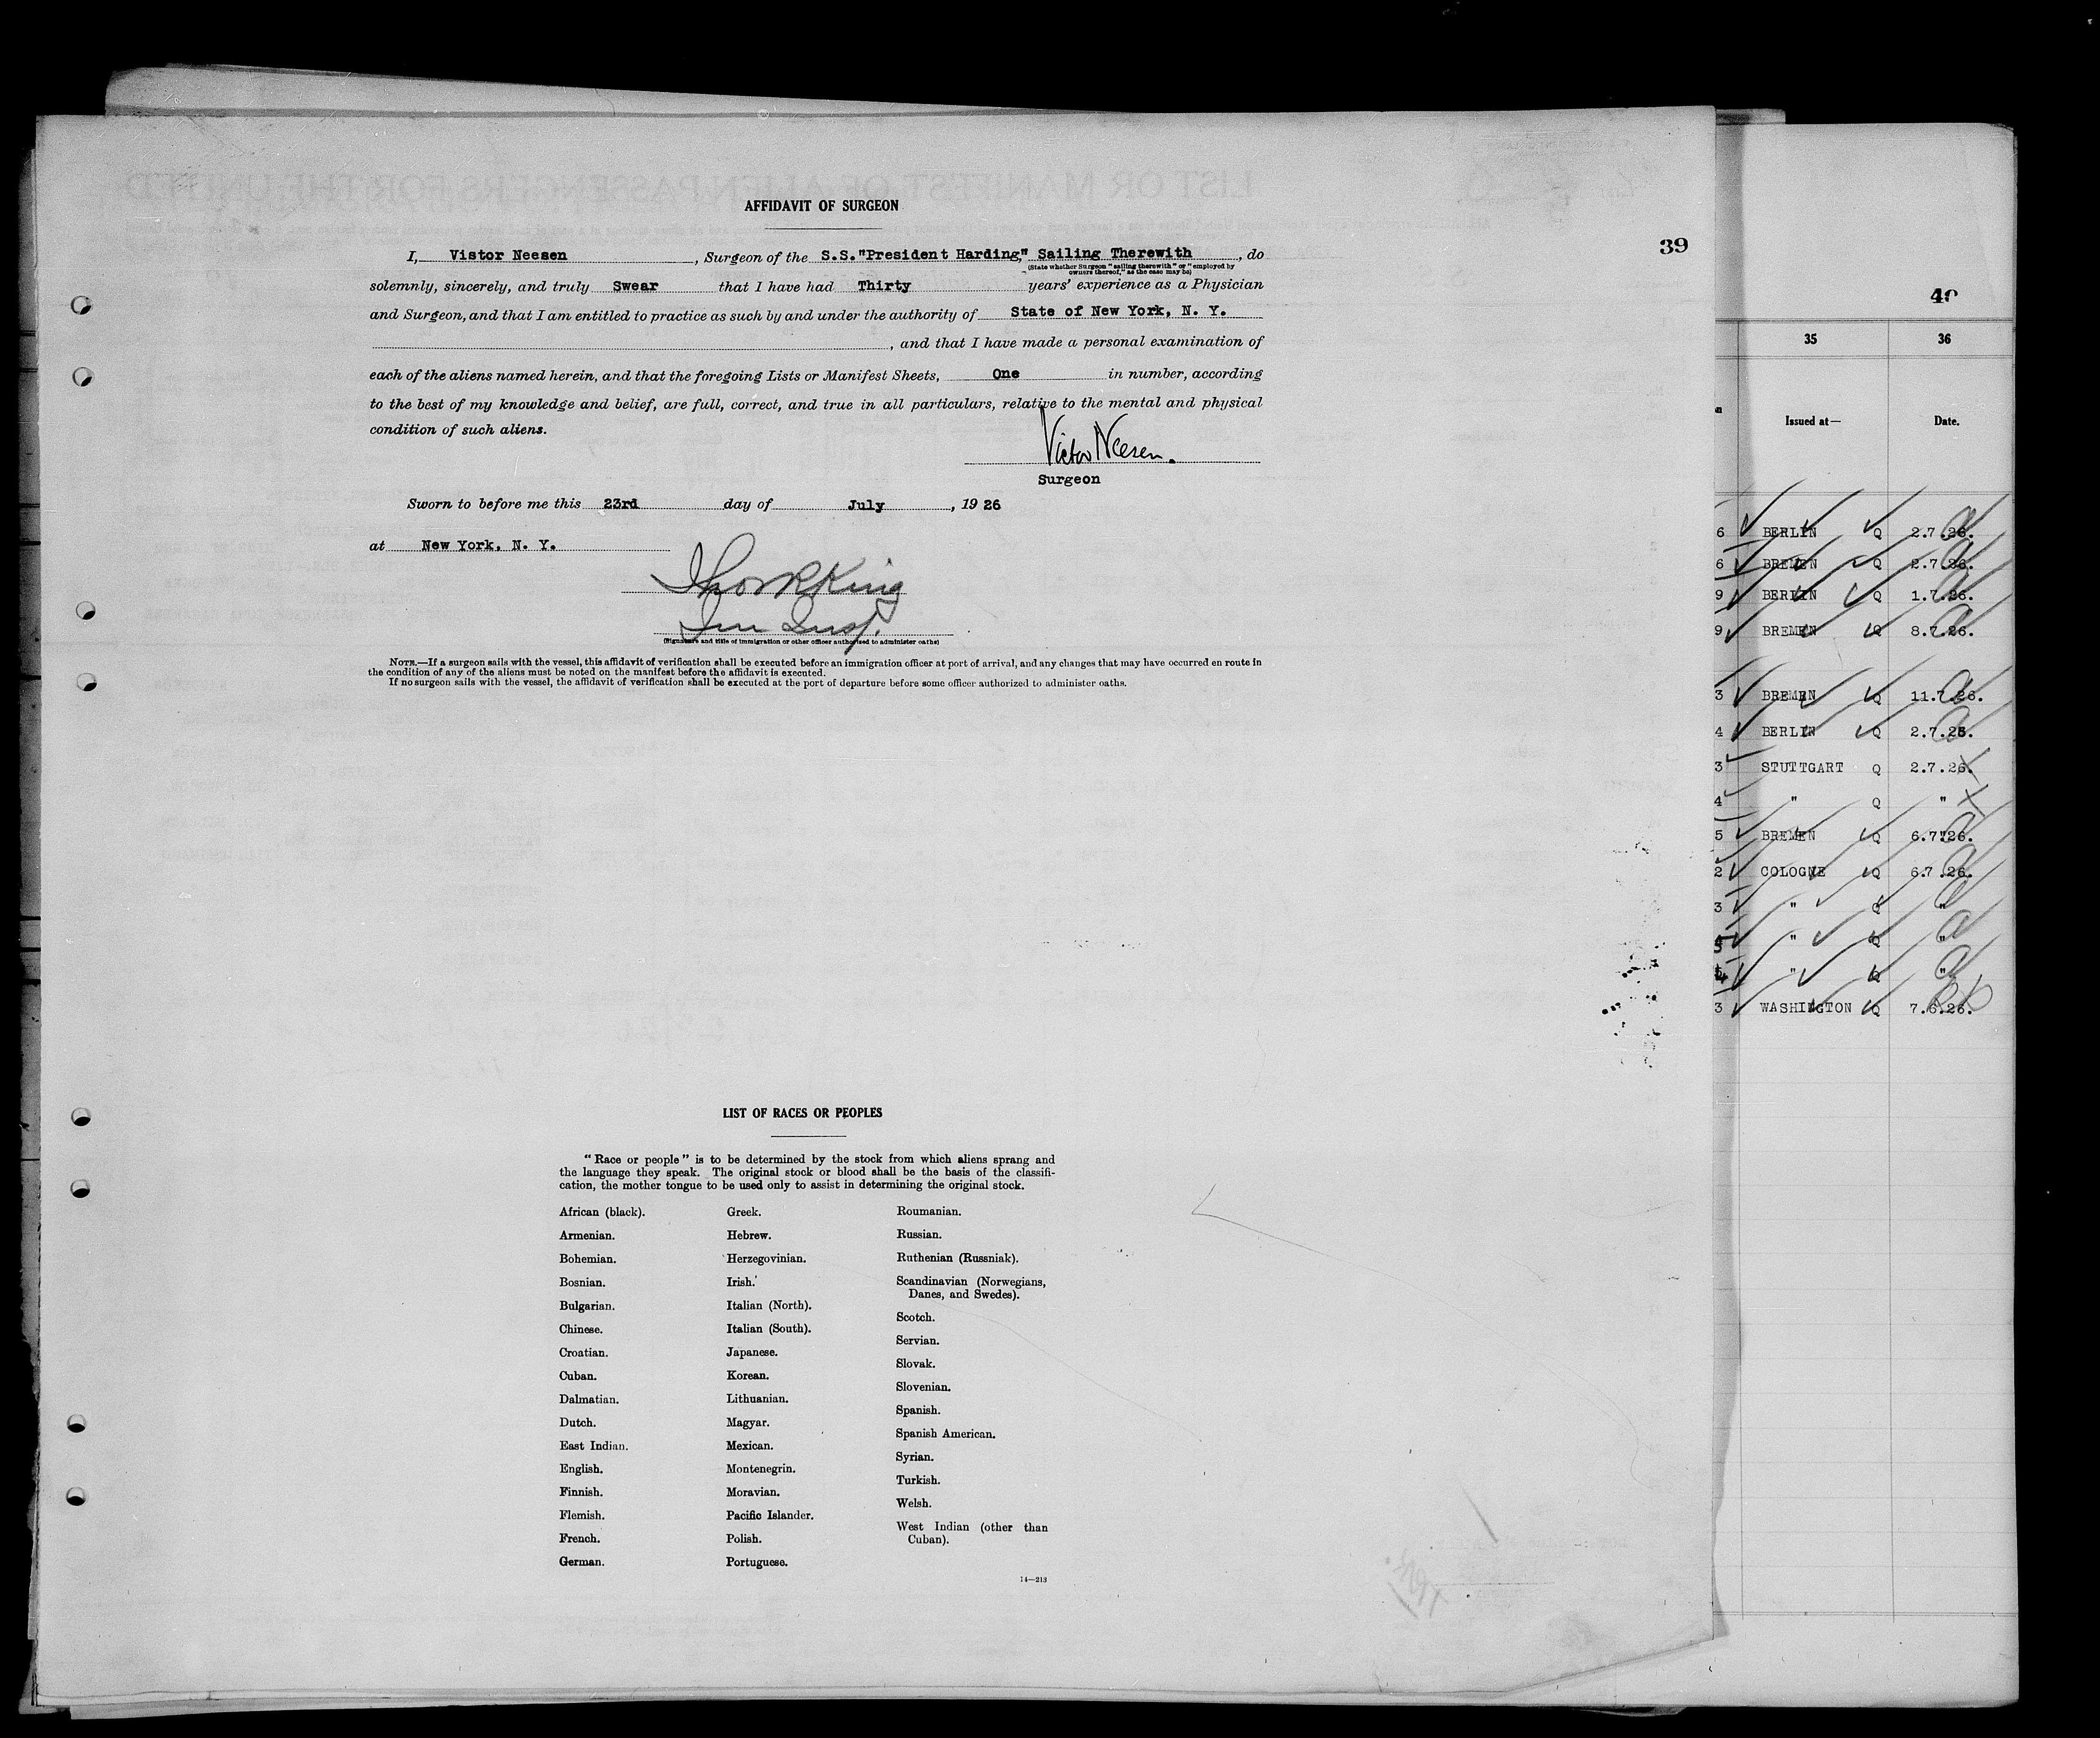 AFFIDAVIT OF SURGEON
39
I, Vistor Neesen, Surgeon of the S.S."President Harding," Sailing Therewith, do
(State whether Surgeon "sailing therewith" or "employed by
owners thereof," as the case may be)
solemnly, sincerely, and truly Swear that I have had Thirty years' experience as a Physician
and Surgeon, and that I am entitled to practice as such by and under the authority of State of New York, N. Y.
, and that I have made a personal examination of
each of the aliens named herein, and that the foregoing Lists or Manifest Sheets, One in number, according
to the best of my knowledge and belief, are full, correct, and true in all particulars, relative to the mental and physical
condition of such aliens.
Victor Neesen.
Surgeon
Sworn to before me this 23rd day of July, 1926
at New York, N. Y.
King
Imm Insp.
(Signature and title of immigration or other officer authorized to administer oaths)
NOTE.—If a surgeon sails with the vessel, this affidavit of verification shall be executed before an immigration officer at port of arrival, and any changes that may have occurred en route in
the condition of any of the aliens must be noted on the manifest before the affidavit is executed.
If no surgeon sails with the vessel, the affidavit of verification shall be executed at the port of departure before some officer authorized to administer oaths.
LIST OF RACES OR PEOPLES
"Race or people" is to be determined by the stock from which aliens sprang and
the language they speak. The original stock or blood shall be the basis of the classifi-
cation, the mother tongue to be used only to assist in determining the original stock.
African (black).
Armenian.
Bohemian.
Bosnian.
Bulgarian.
Chinese.
Croatian.
Cuban.
Dalmatian.
Dutch.
East Indian.
English.
Finnish.
Flemish.
French.
German.
Greek.
Hebrew.
Herzegovinian.
Irish.
Italian (North).
Italian (South).
Japanese.
Korean.
Lithuanian.
Magyar.
Mexican.
Montenegrin.
Moravian.
Pacific Islander.
Polish.
Portuguese.
Roumanian.
Russian.
Ruthenian (Russniak).
Scandinavian (Norwegians,
Danes, and Swedes).
Scotch.
Servian.
Slovak.
Slovenian.
Spanish.
Spanish American.
Syrian.
Turkish.
Welsh.
West Indian (other than
Cuban).
14—213
35 36
Issued at— Date.
6 BERLIN Q 2.7.26.
6 BREMEN Q 2.7.26.
9 BERLIN Q 1.7.26.
9 BREMEN Q 8.7.26.
3 BREMEN Q 11.7.26.
4 BERLIN Q 2.7.26.
3 STUTTGART Q 2.7.26.
4 " Q "
5 BREMEN Q 6.7.26.
2 COLOGNE Q 6.7.26.
3 " Q "
" Q "
" Q "
3 WASHINGTON Q 7.6.26.